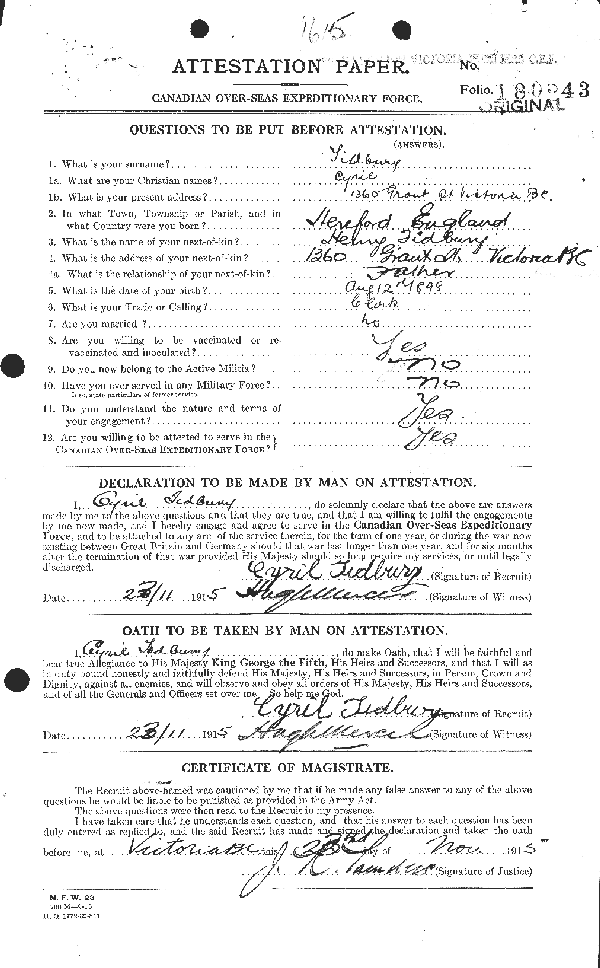 1615
ATTESTATION PAPER.
No.
Folio.
180943
ORIGINAL
CANADIAN OVER-SEAS EXPEDITIONARY FORCE.
QUESTIONS TO BE PUT BEFORE ATTESTATION.
(ANSWERS).
1. What is your surname? Tidbury
1a. What are your Christian names? Cyril
1b. What is your present address? 1360 Grant St Victoria BC.
2. In what Town, Township or Parish, and in
what Country were you born? Hereford England
3. What is the name of your next-of-kin? Henry Tidbury
4. What is the address of your next-of-kin? 1360 Grant St. Victoria BC
4a. What is the relationship of your next-of-kin? Father
5. What is the date of your birth? Aug 12th 1898
6. What is your Trade or Calling? Clerk
7. Are you married? No
8. Are you willing to be vaccinated or re-
vaccinated and inoculated? Yes
9. Do you now belong to the Active Militia? No
10. Have you ever served in any Military Force? No
If so, state particulars of former service.
11. Do you understand the nature and terms of
your engagement? Yes
12. Are you willing to be attested to serve in the
CANADIAN OVER-SEAS EXPEDITIONARY FORCE? Yes
DECLARATION TO BE MADE BY MAN ON ATTESTATION.
I, Cyril Tidbury, do solemnly declare that the above are answers
made by me to the above questions and that they are true, and that I am willing to fulfil the engagements
by me now made, and I hereby engage and agree to serve in the Canadian Over-Seas Expeditionary
Force, and to be attached to any arm of the service therein, for the term of one year, or during the war now
existing between Great Britain and Germany should that war last longer than one year, and for six months
after the termination of that war provided His Majesty should so long require my services, or until legally
discharged.
Cyril Tidbury (Signature of Recruit)
Date 23/11 1915 (Signature of Witness)
OATH TO BE TAKEN BY MAN ON ATTESTATION.
I, Cyril Tidbury, do make Oath, that I will be faithful and
bear true Allegiance to His Majesty King George the Fifth, His Heirs and Successors, and that I will as
in duty bound honestly and faithfully defend His Majesty, His Heirs and Successors, in Person, Crown and
Dignity, against all enemies, and will observe and obey all orders of His Majesty, His Heirs and Successors,
and of all the Generals and Officers set over me. So help me God.
Cyril Tidbury (Signature of Recruit)
Date 23/11 1915 (Signature of Witness)
CERTIFICATE OF MAGISTRATE.
The Recruit above-named was cautioned by me that if he made any false answer to any of the above
questions he would be liable to be punished as provided in the Army Act.
The above questions were then read to the Recruit in my presence.
I have taken care that he understands each question, and that his answer to each question has been
duly entered as replied to, and the said Recruit has made and signed the declaration and taken the oath
before me, at Victoria BC this 23rd day of Nov 1915
(Signature of Justice)
M. F. W. 23